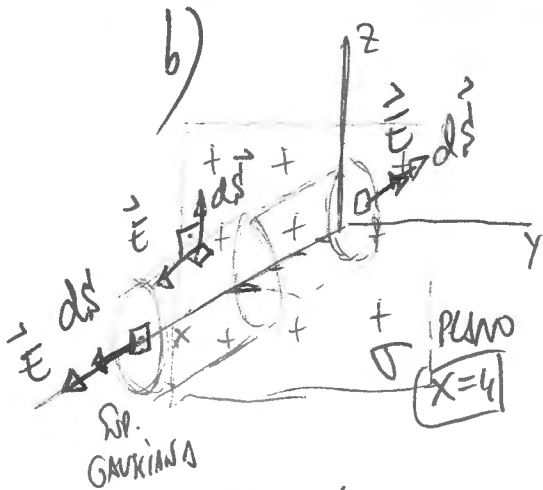 b)
z
E⃗ dS⃗
dS⃗
E⃗
Y
dS⃗
E⃗
x
σ
PLANO
x=4
SUP.
GAUSSIANA